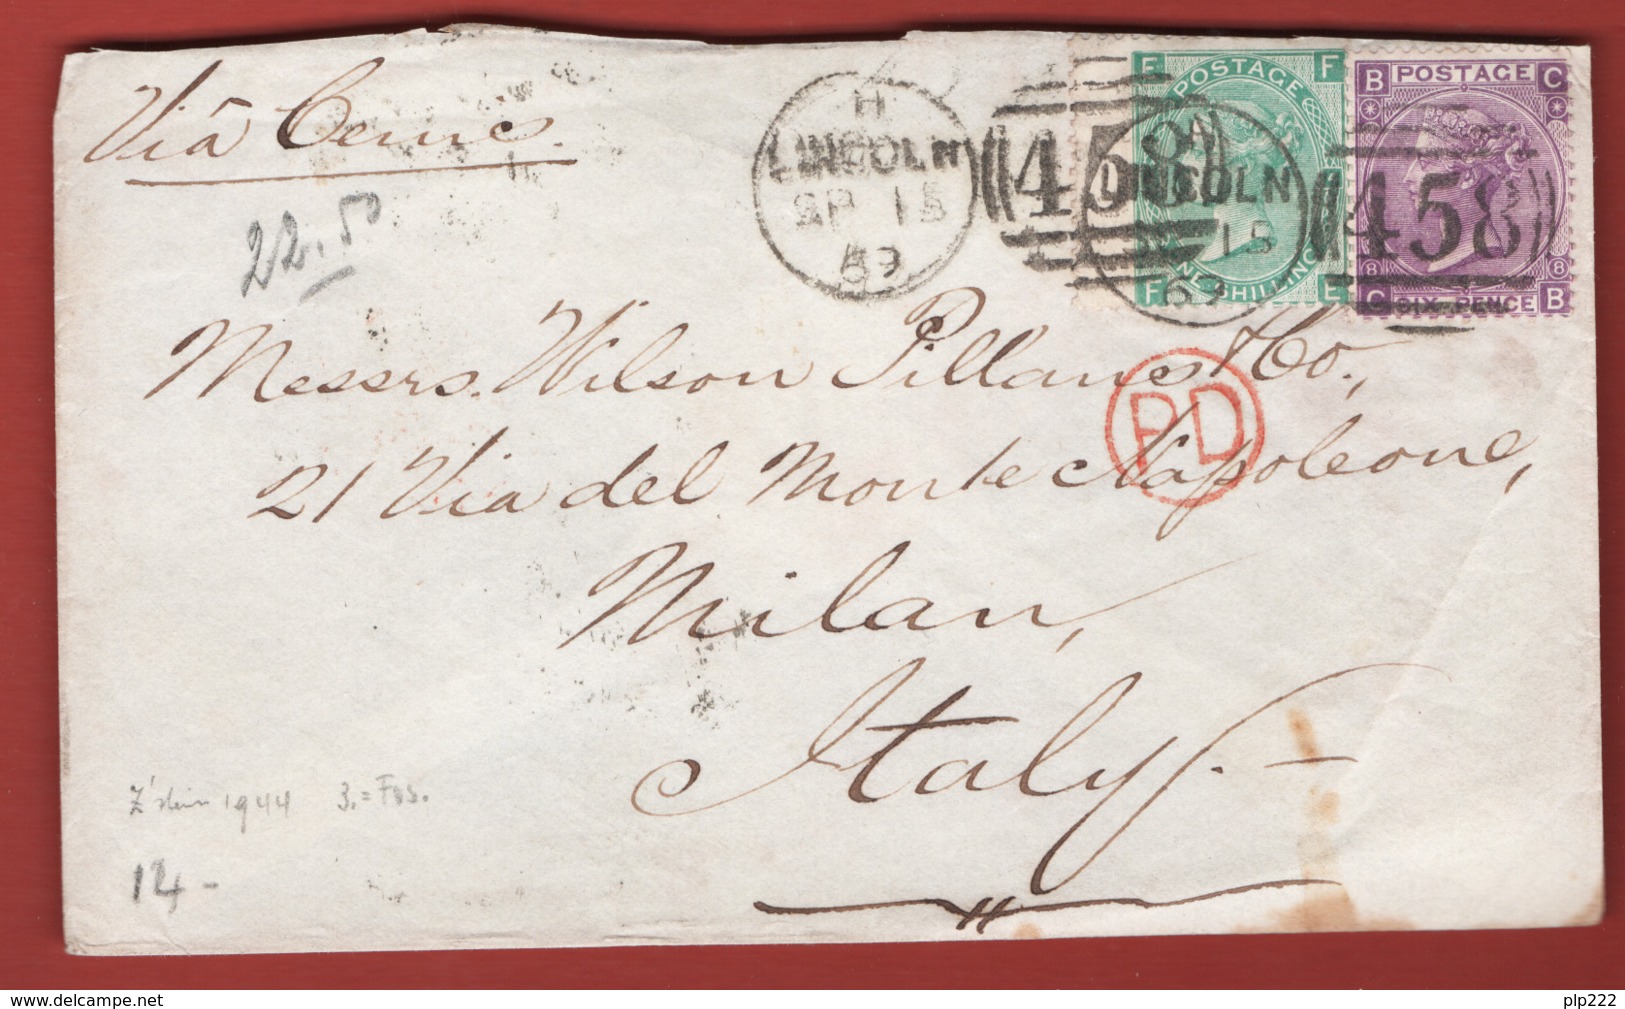 Viâ Cenis
22.50
H
LINCOLN
SP 15
69
458
LINCOLN
15
69
458
F POSTAGE F
F ONE SHILLING E
B POSTAGE C
8 8
C SIX-PENCE B
Messrs. Wilson Pillans & Co.,
PD
21 Via del Monte Napoleone,
Milan,
Italy.—
1944 3.=
14 -
delcampe.net
plp222